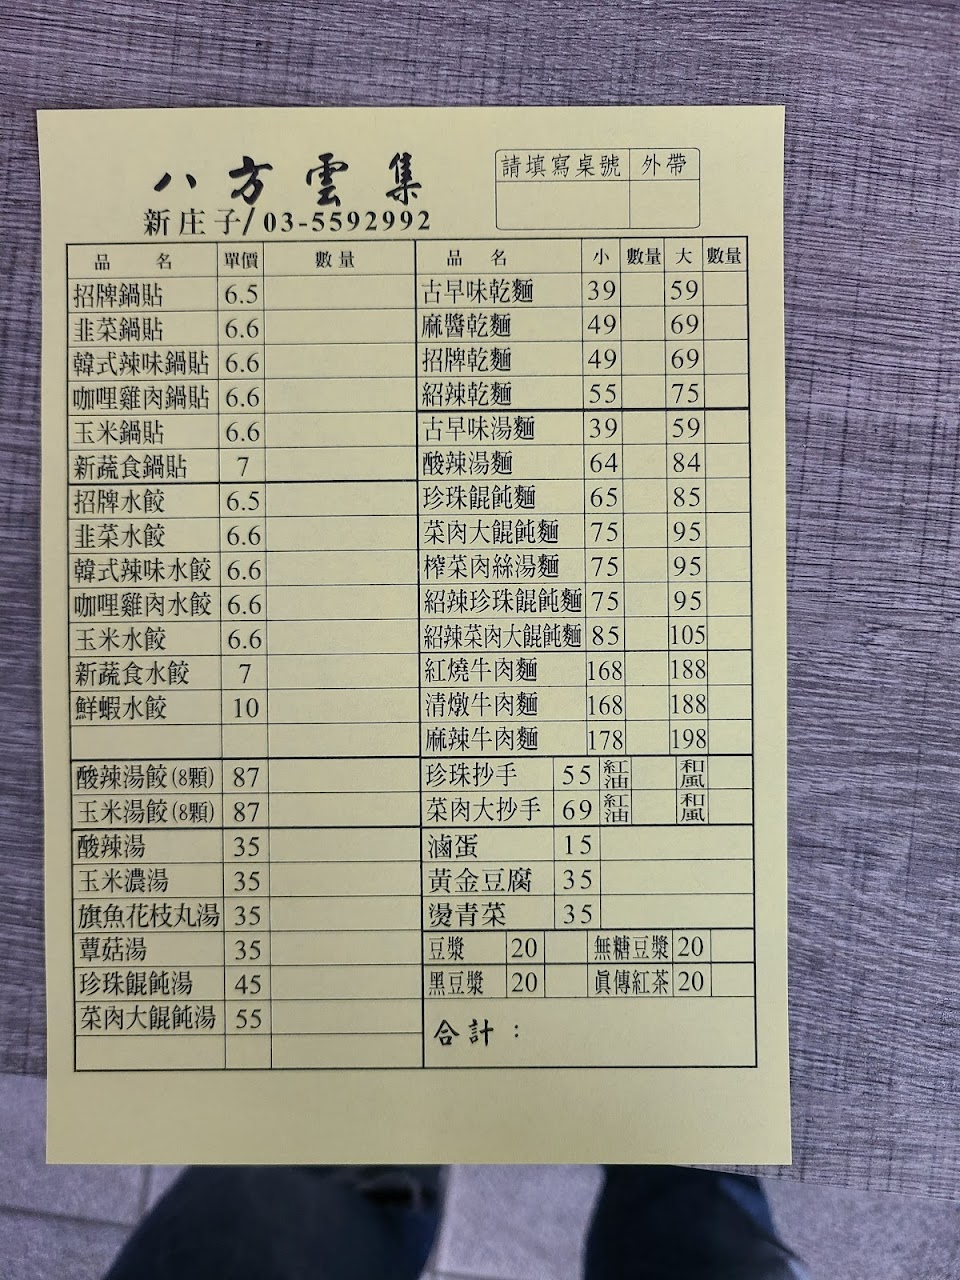 八方雲集
新庄子/03-5592992
請填寫桌號 外帶
品名 單價 數量
招牌鍋貼 6.5
韭菜鍋貼 6.6
韓式辣味鍋貼 6.6
咖哩雞肉鍋貼 6.6
玉米鍋貼 6.6
新蔬食鍋貼 7
招牌水餃 6.5
韭菜水餃 6.6
韓式辣味水餃 6.6
咖哩雞肉水餃 6.6
玉米水餃 6.6
新蔬食水餃 7
鮮蝦水餃 10
酸辣湯餃(8顆) 87
玉米湯餃(8顆) 87
酸辣湯 35
玉米濃湯 35
旗魚花枝丸湯 35
蕈菇湯 35
珍珠餛飩湯 45
菜肉大餛飩湯 55
品名 小 數量 大 數量
古早味乾麵 39 59
麻醬乾麵 49 69
招牌乾麵 49 69
紹辣乾麵 55 75
古早味湯麵 39 59
酸辣湯麵 64 84
珍珠餛飩麵 65 85
菜肉大餛飩麵 75 95
榨菜肉絲湯麵 75 95
紹辣珍珠餛飩麵 75 95
紹辣菜肉大餛飩麵 85 105
紅燒牛肉麵 168 188
清燉牛肉麵 168 188
麻辣牛肉麵 178 198
珍珠抄手 55 紅油 和風
菜肉大抄手 69 紅油 和風
滷蛋 15
黃金豆腐 35
燙青菜 35
豆漿 20 無糖豆漿 20
黑豆漿 20 真傳紅茶 20
合計：